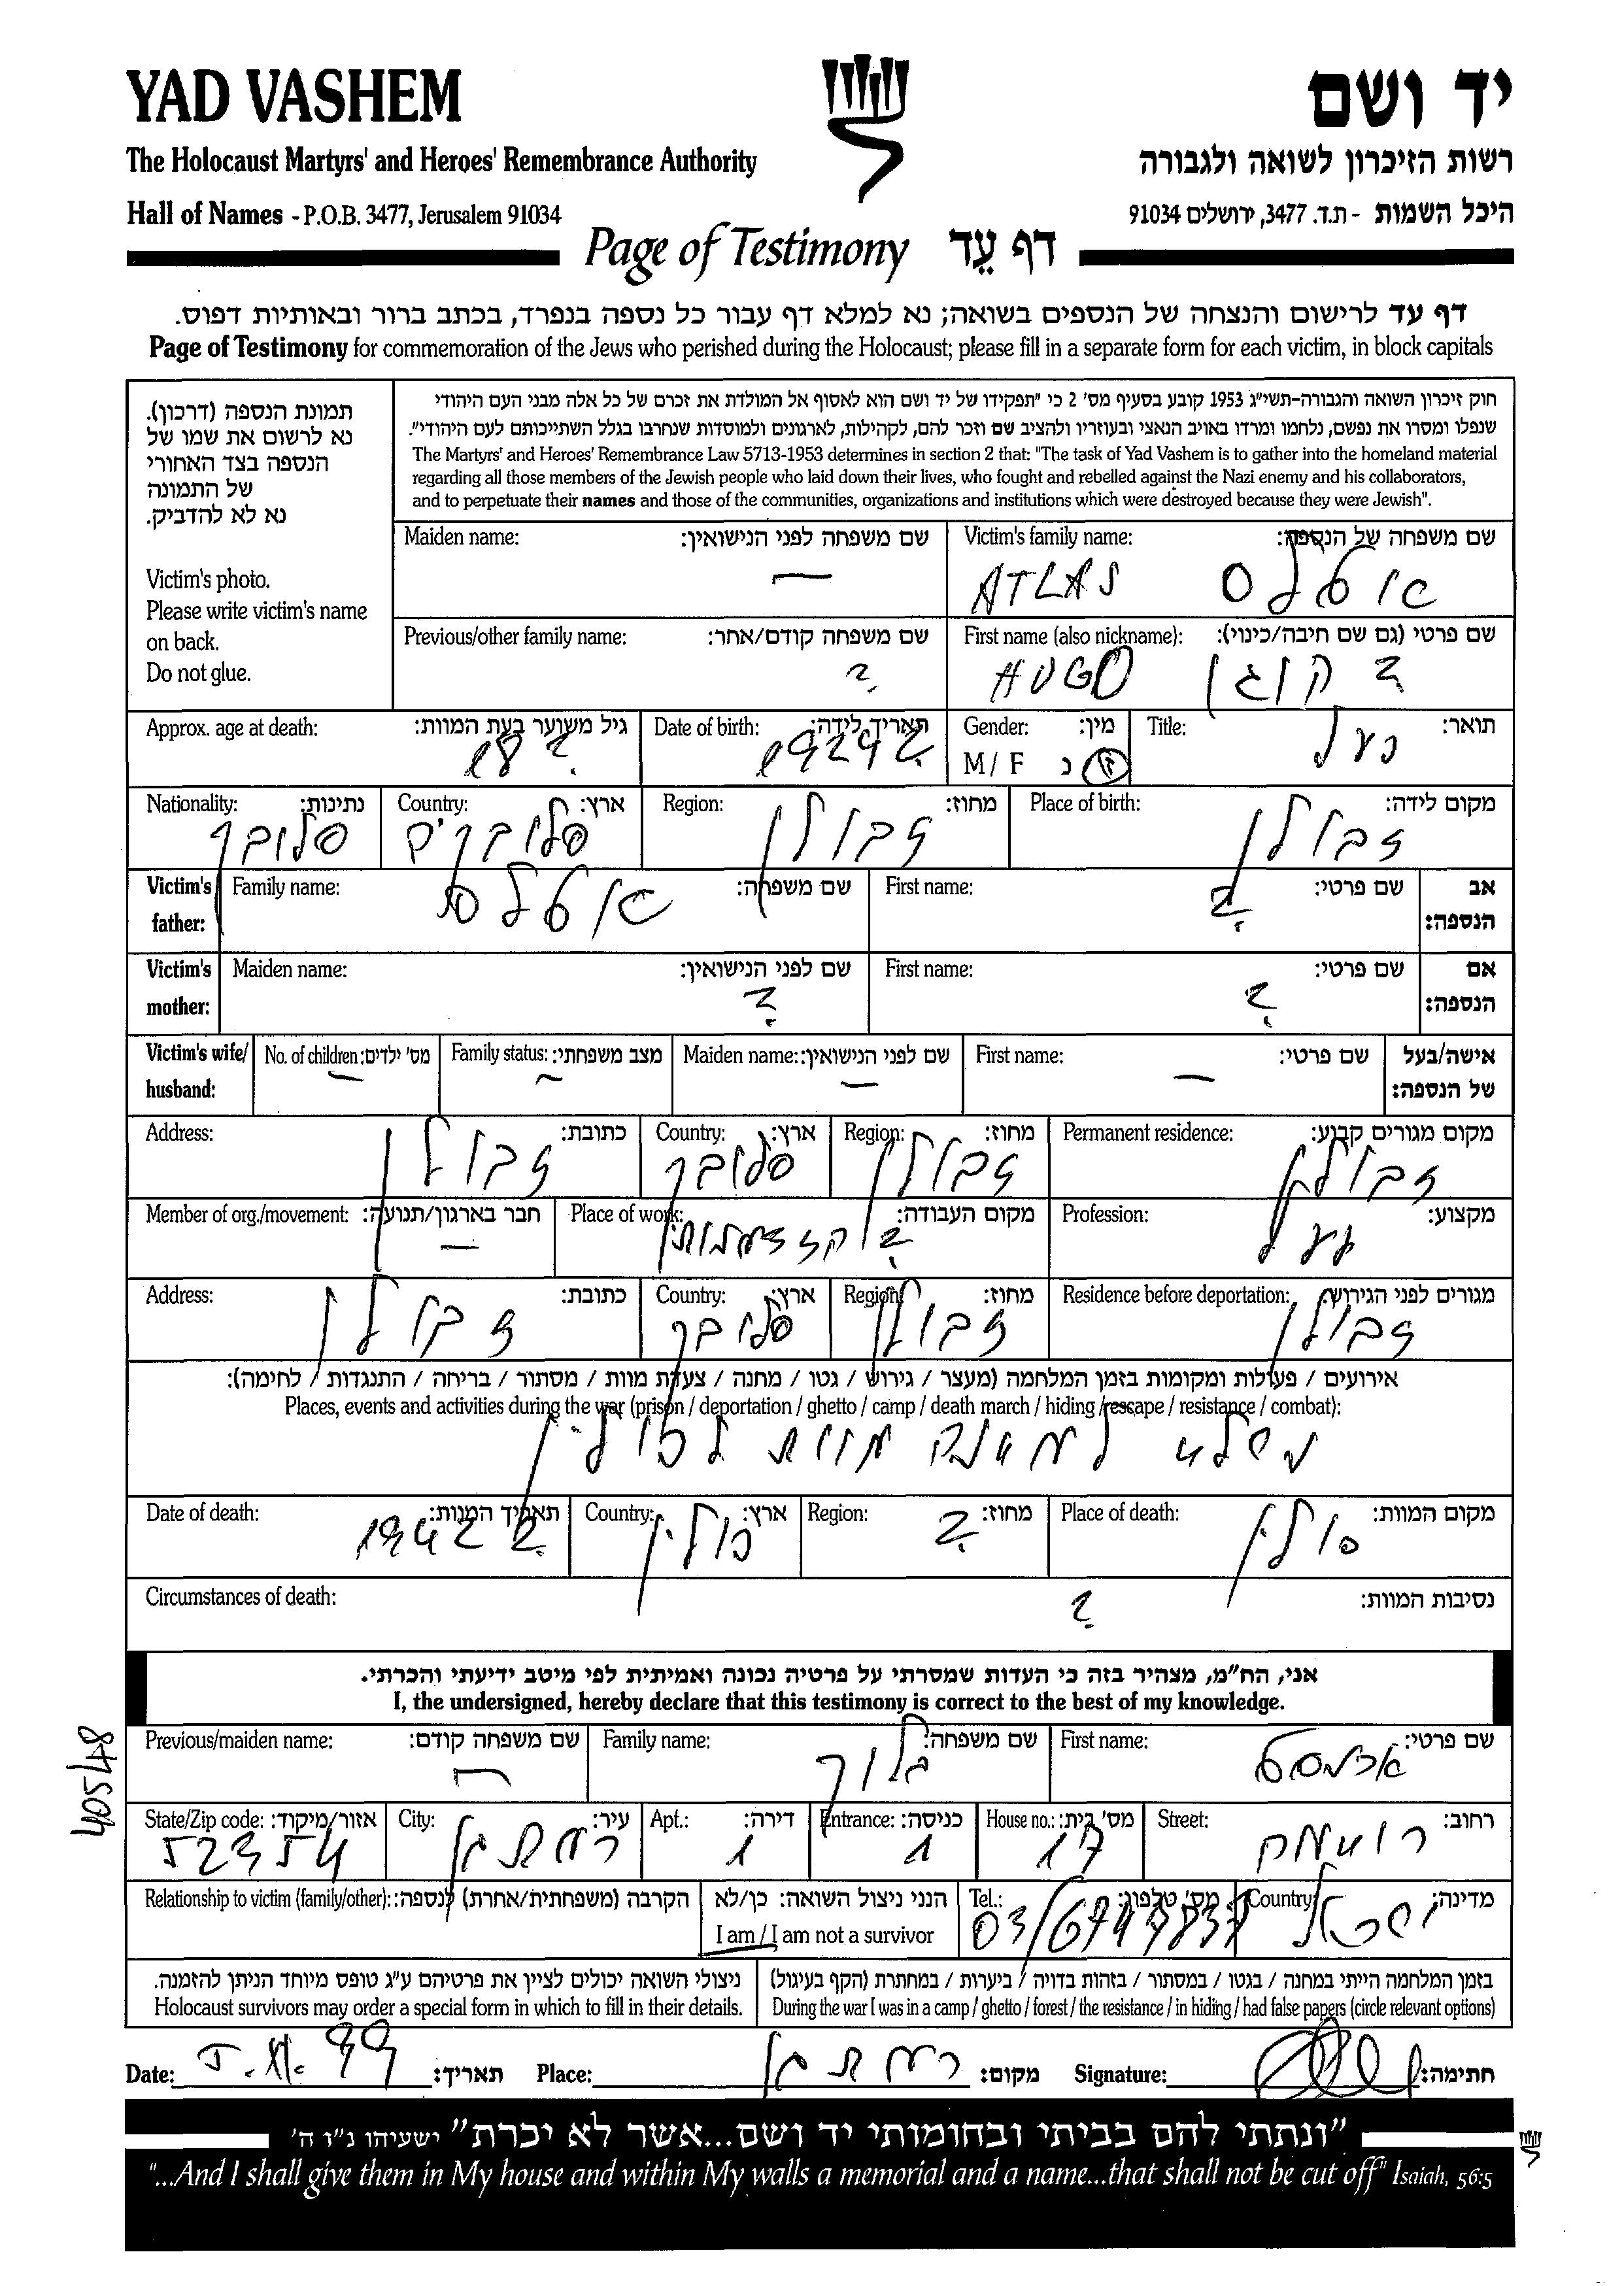 YAD VASHEM
יד ושם
The Holocaust Martyrs' and Heroes' Remembrance Authority
רשות הזיכרון לשואה ולגבורה
Hall of Names - P.O.B. 3477, Jerusalem 91034
היכל השמות - ת.ד. 3477, ירושלים 91034
Page of Testimony דף עֵד
דף עד לרישום והנצחה של הנספים בשואה; נא למלא דף עבור כל נספה בנפרד, בכתב ברור ובאותיות דפוס.
Page of Testimony for commemoration of the Jews who perished during the Holocaust; please fill in a separate form for each victim, in block capitals
תמונת הנספה (דרכון).
נא לרשום את שמו של
הנספה בצד האחורי
של התמונה
נא לא להדביק.
Victim's photo.
Please write victim's name
on back.
Do not glue.
חוק זיכרון השואה והגבורה-תשי"ג 1953 קובע בסעיף מס' 2 כי "תפקידו של יד ושם הוא לאסוף אל המולדת את זכרם של כל אלה מבני העם היהודי
שנפלו ומסרו את נפשם, נלחמו ומרדו באויב הנאצי ובעוזריו ולהציב שם וזכר להם, לקהילות, לארגונים ולמוסדות שנחרבו בגלל השתייכותם לעם היהודי".
The Martyrs' and Heroes' Remembrance Law 5713-1953 determines in section 2 that: "The task of Yad Vashem is to gather into the homeland material
regarding all those members of the Jewish people who laid down their lives, who fought and rebelled against the Nazi enemy and his collaborators,
and to perpetuate their names and those of the communities, organizations and institutions which were destroyed because they were Jewish".
Maiden name: שם משפחה לפני הנישואין: Victim's family name: שם משפחה של הנספה:
— ATLAS אטלס
Previous/other family name: שם משפחה קודם/אחר: First name (also nickname): שם פרטי (גם שם חיבה/כינוי):
? HUGO הוגו ?
Approx. age at death: גיל משוער בעת המוות: Date of birth: תאריך לידה: Gender: מין: Title: תואר:
18 ? 1924 ? M / F ז נ
Nationality: נתינות: Country: ארץ: Region: מחוז: Place of birth: מקום לידה:
סלובק זבולן זבולן
Victim's father: Family name: שם משפחה: First name: שם פרטי: אב הנספה:
אטלס ?
Victim's mother: Maiden name: שם לפני הנישואין: First name: שם פרטי: אם הנספה:
? ?
Victim's wife/ husband: No. of children: מס' ילדים: Family status: מצב משפחתי: Maiden name: שם לפני הנישואין: First name: שם פרטי: אישה/בעל של הנספה:
— — — —
Address: כתובת: Country: ארץ: Region: מחוז: Permanent residence: מקום מגורים קבוע:
זבולן סלובק זבולן זבולן
Member of org./movement: חבר בארגון/תנועה: Place of work: מקום העבודה: Profession: מקצוע:
— ?
Address: כתובת: Country: ארץ: Region: מחוז: Residence before deportation: מגורים לפני הגירוש:
זבולן סלובק זבולן זבולן
אירועים / פעולות ומקומות בזמן המלחמה (מעצר / גירוש / גטו / מחנה / צעדת מוות / מסתור / בריחה / התנגדות / לחימה):
Places, events and activities during the war (prison / deportation / ghetto / camp / death march / hiding / escape / resistance / combat):
נשלח למחנה מוות לפולין
Date of death: תאריך המוות: Country: ארץ: Region: מחוז: Place of death: מקום המוות:
1942 ? פולין ? פולין
Circumstances of death: נסיבות המוות:
?
אני, הח"מ, מצהיר בזה כי העדות שמסרתי על פרטיה נכונה ואמיתית לפי מיטב ידיעתי והכרתי.
I, the undersigned, hereby declare that this testimony is correct to the best of my knowledge.
Previous/maiden name: שם משפחה קודם: Family name: שם משפחה: First name: שם פרטי:
— ארנסט
State/Zip code: אזור/מיקוד: City: עיר: Apt.: דירה: Entrance: כניסה: House no.: מס' בית: Street: רחוב:
52354 רמת גן 1 1 17
Relationship to victim (family/other): הקרבה (משפחתית/אחרת) לנספה: הנני ניצול השואה: כן/לא Tel.: מס' טלפון: Country: מדינה:
I am / I am not a survivor ישראל
ניצולי השואה יכולים לציין את פרטיהם ע"ג טופס מיוחד הניתן להזמנה. בזמן המלחמה הייתי במחנה / בגטו / במסתור / בזהות בדויה / ביערות / במחתרת (הקף בעיגול)
Holocaust survivors may order a special form in which to fill in their details. During the war I was in a camp / ghetto / forest / the resistance / in hiding / had false papers (circle relevant options)
Date: 5.XI.99 תאריך: Place: רמת גן מקום: Signature: חתימה:
"ונתתי להם בביתי ובחומותי יד ושם...אשר לא יכרת" ישעיהו נ"ו ה'
"...And I shall give them in My house and within My walls a memorial and a name...that shall not be cut off" Isaiah, 56:5